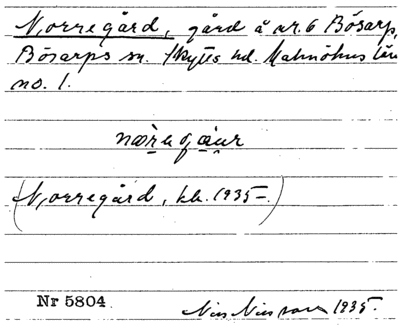 Norregård, gård å nr. 6 Bösarp,
Bösarps sn. Skytts hd. Malmöhus län
no. 1.
(Norregård, kb. 1935-)
Nr 5804
Nils Nilsson 1935.